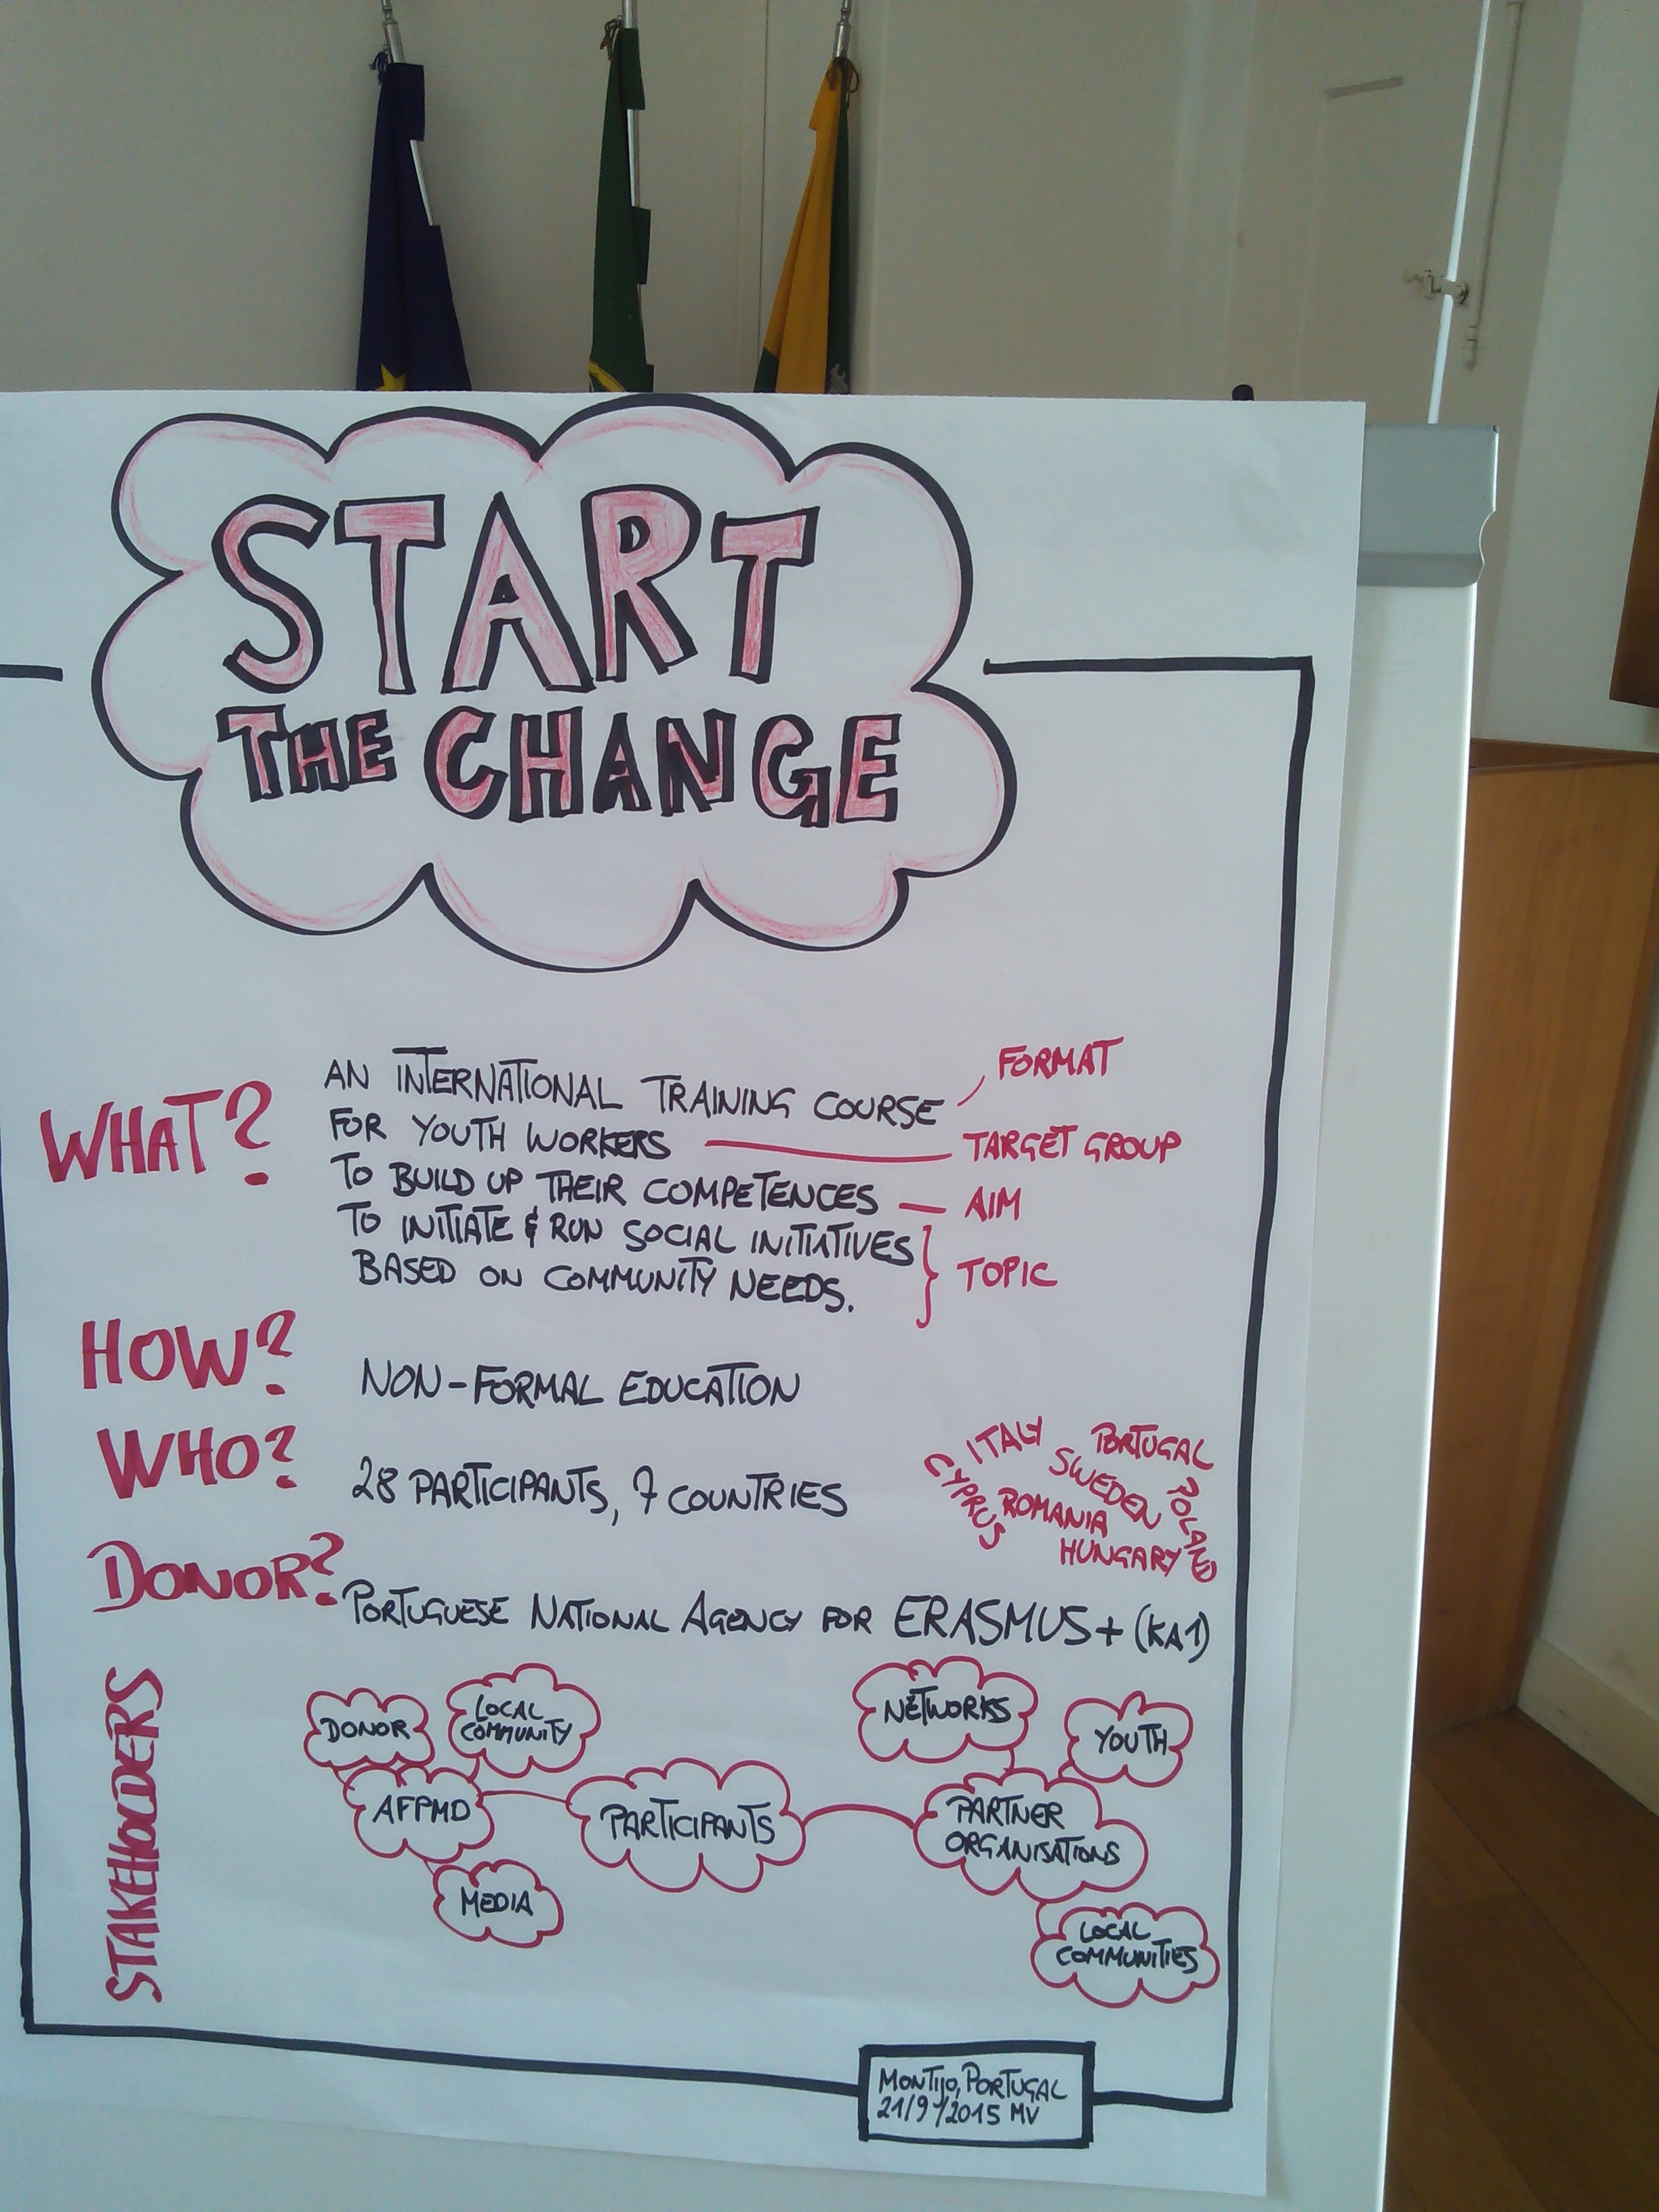 START
THE CHANGE
WHAT?
AN INTERNATIONAL TRAINING COURSE
FORMAT
FOR YOUTH WORKERS
TARGET GROUP
TO BUILD UP THEIR COMPETENCES
AIM
TO INITIATE & RUN SOCIAL INITIATIVES
BASED ON COMMUNITY NEEDS.
TOPIC
HOW?
NON-FORMAL EDUCATION
WHO?
28 PARTICIPANTS, 7 COUNTRIES
ITALY
PORTUGAL
CYPRUS
SWEDEN
POLAND
ROMANIA
HUNGARY
DONOR?
PORTUGUESE NATIONAL AGENCY FOR ERASMUS+ (KA1)
STAKEHOLDERS
DONOR
LOCAL
COMMUNITY
AFPMD
MEDIA
PARTICIPANTS
NETWORKS
YOUTH
PARTNER
ORGANISATIONS
LOCAL
COMMUNITIES
MONTIJO, PORTUGAL
21/9/2015 MV